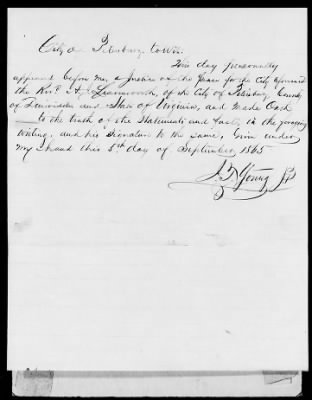 City of Petersburg to Wit:
This day personally
appeared before me, a Justice of the Peace for the City aforesaid
the Revd. A. , of the City of Petersburg County
of Dinwiddie and State of Virginia, and made Oath
to the truth of the Statements and facts, in the foregoing
writing, and his signature to the same, Given under
my hand this 5th day of September, 1865
Young JP